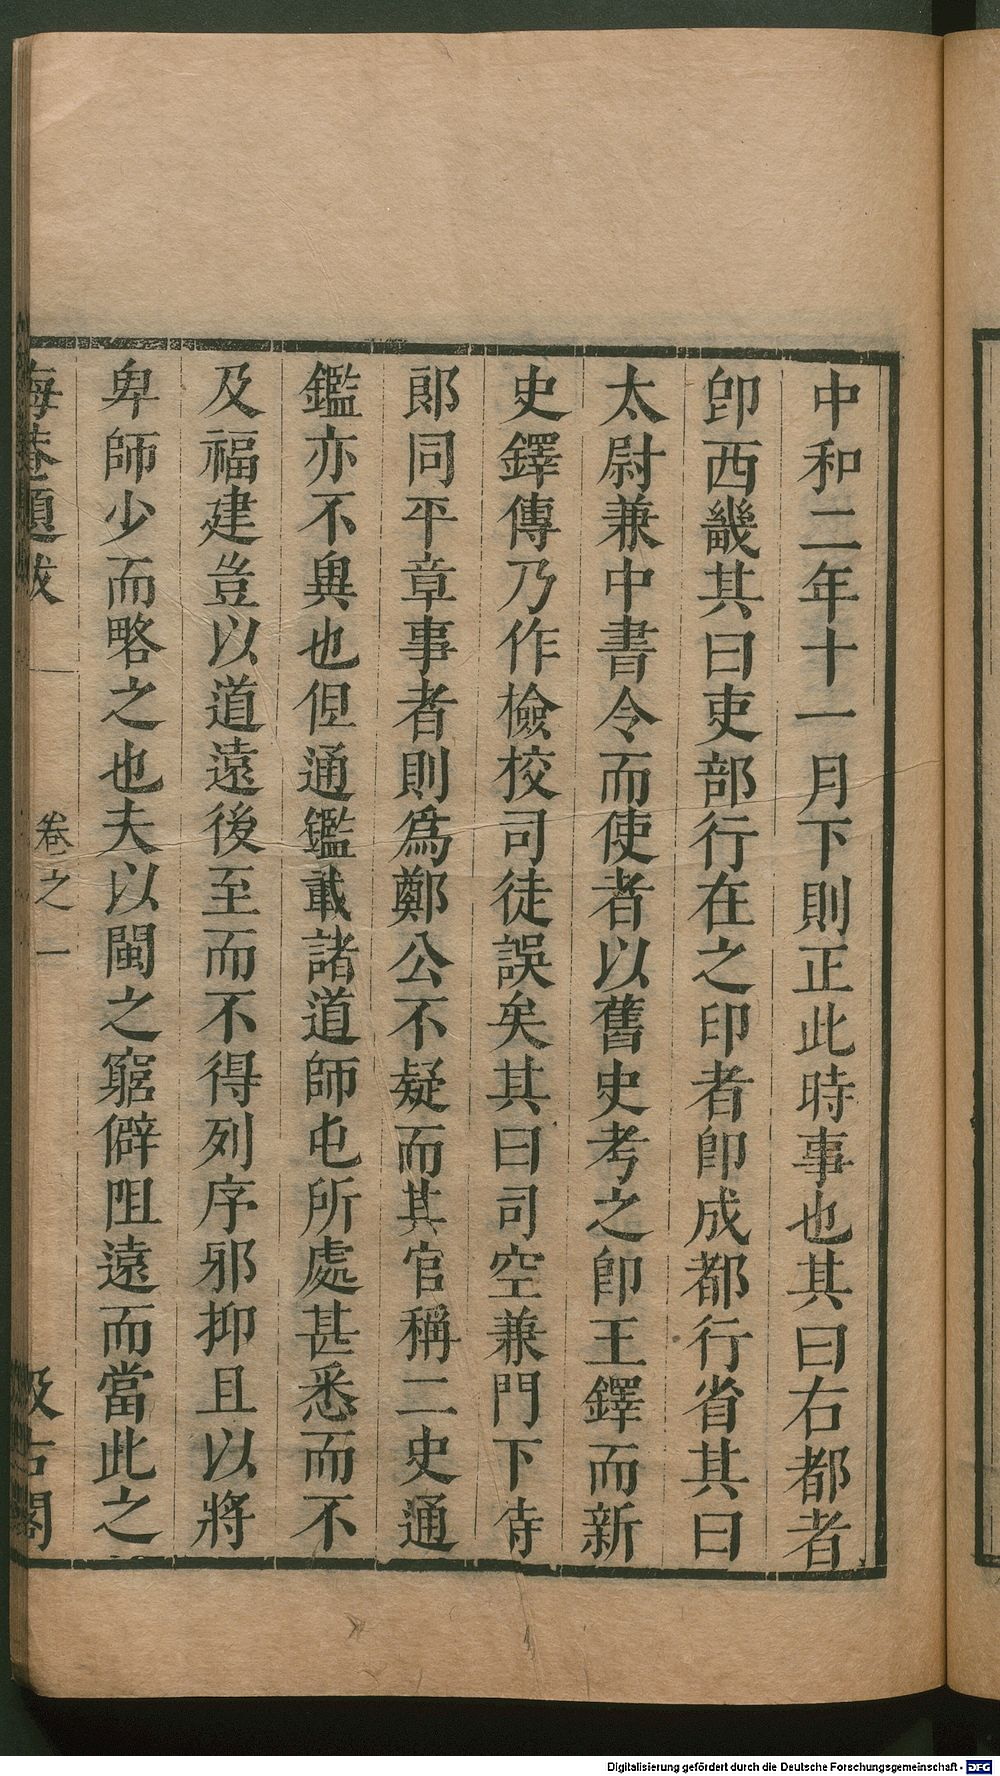 中和二年十一月下則正此時事也其曰右都者
卽西畿其曰吏部行在之印者卽成都行省其曰
太尉兼中書令而使者以舊史考之卽王鐸而新
史鐸傳乃作檢校司徒誤矣其曰司空兼門下侍
郎同平章事者則爲鄭公不疑而其官稱二史通
鑑亦不與也但通鑑載諸道師屯所處甚悉而不
及福建豈以道遠後至而不得列序邪抑且以將
卑師少而略之也夫以閩之窮僻阻遠而當此之
晦菴題跋 卷之一 汲古閣
Digitalisierung gefördert durch die Deutsche Forschungsgemeinschaft - DFG